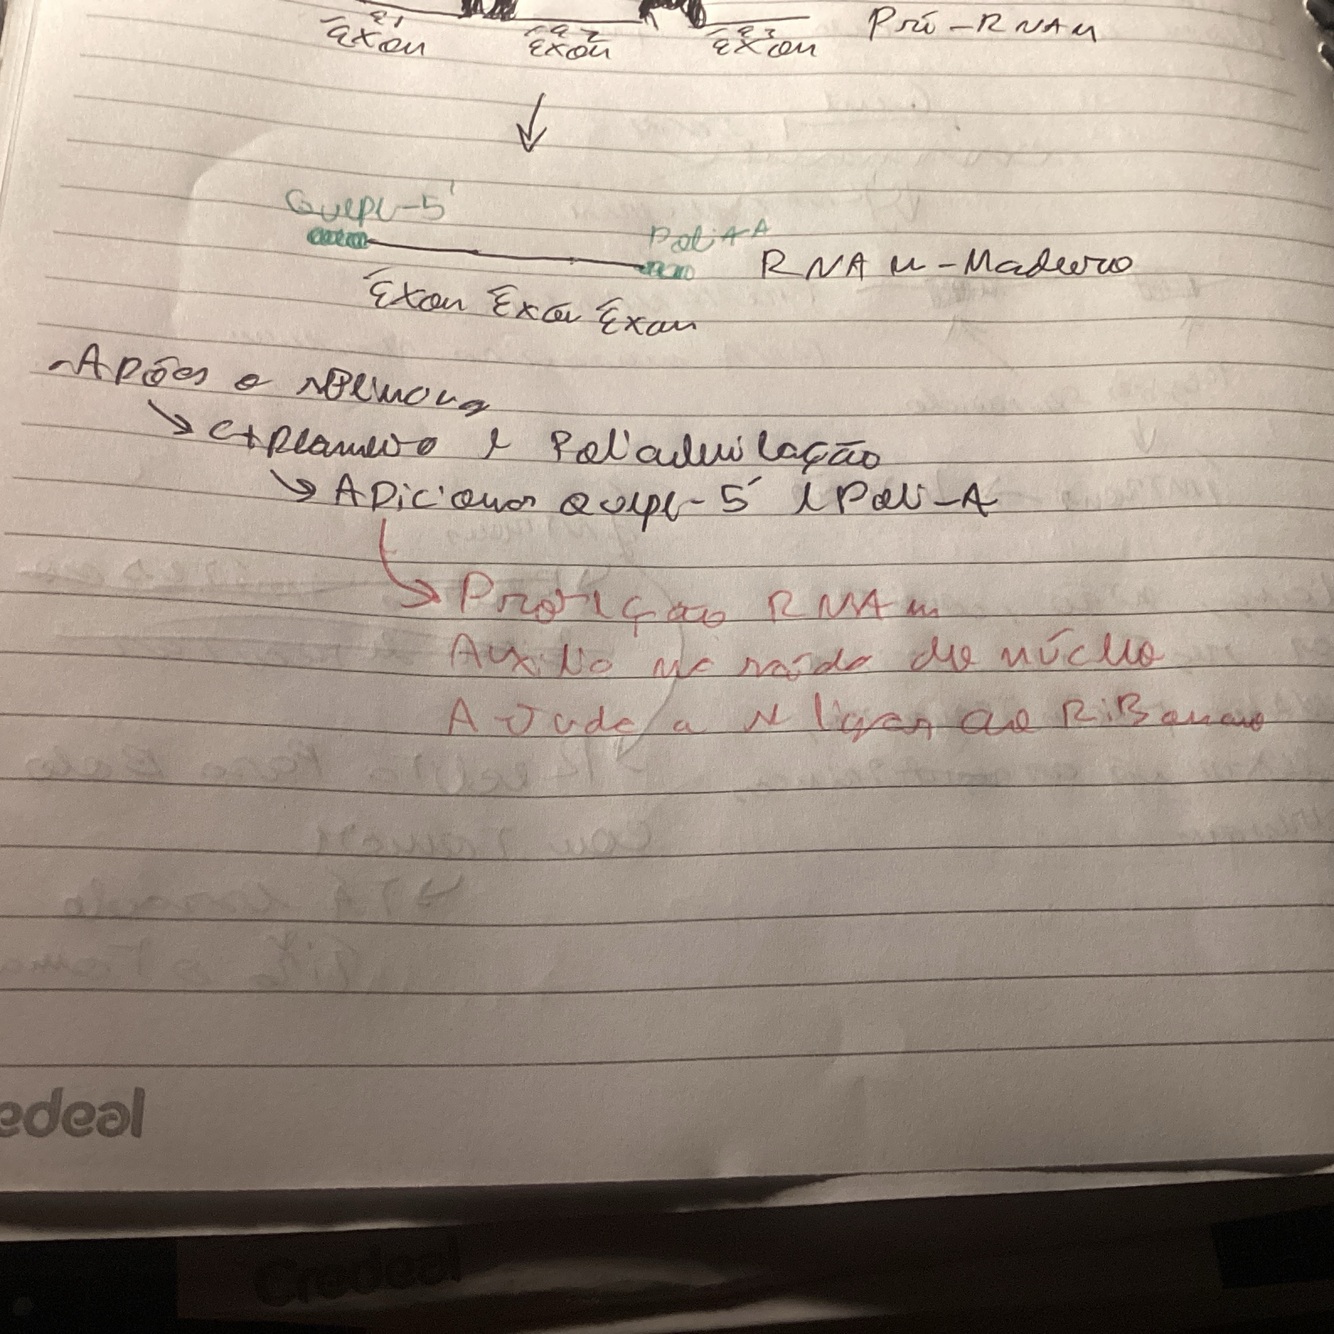 e1 e2 e3
Éxon Éxon Éxon Pré-RNAm
Quepe-5'
Poli-A
RNAm-Maduro
Éxon Éxon Éxon
-Após o
e Poliadenilação
Adicionar Quepe-5' e Poli-A
Proteção RNAm
Auxílio na saída do núcleo
Ajuda a se ligar ao Ribossomo
edeal
Credeal